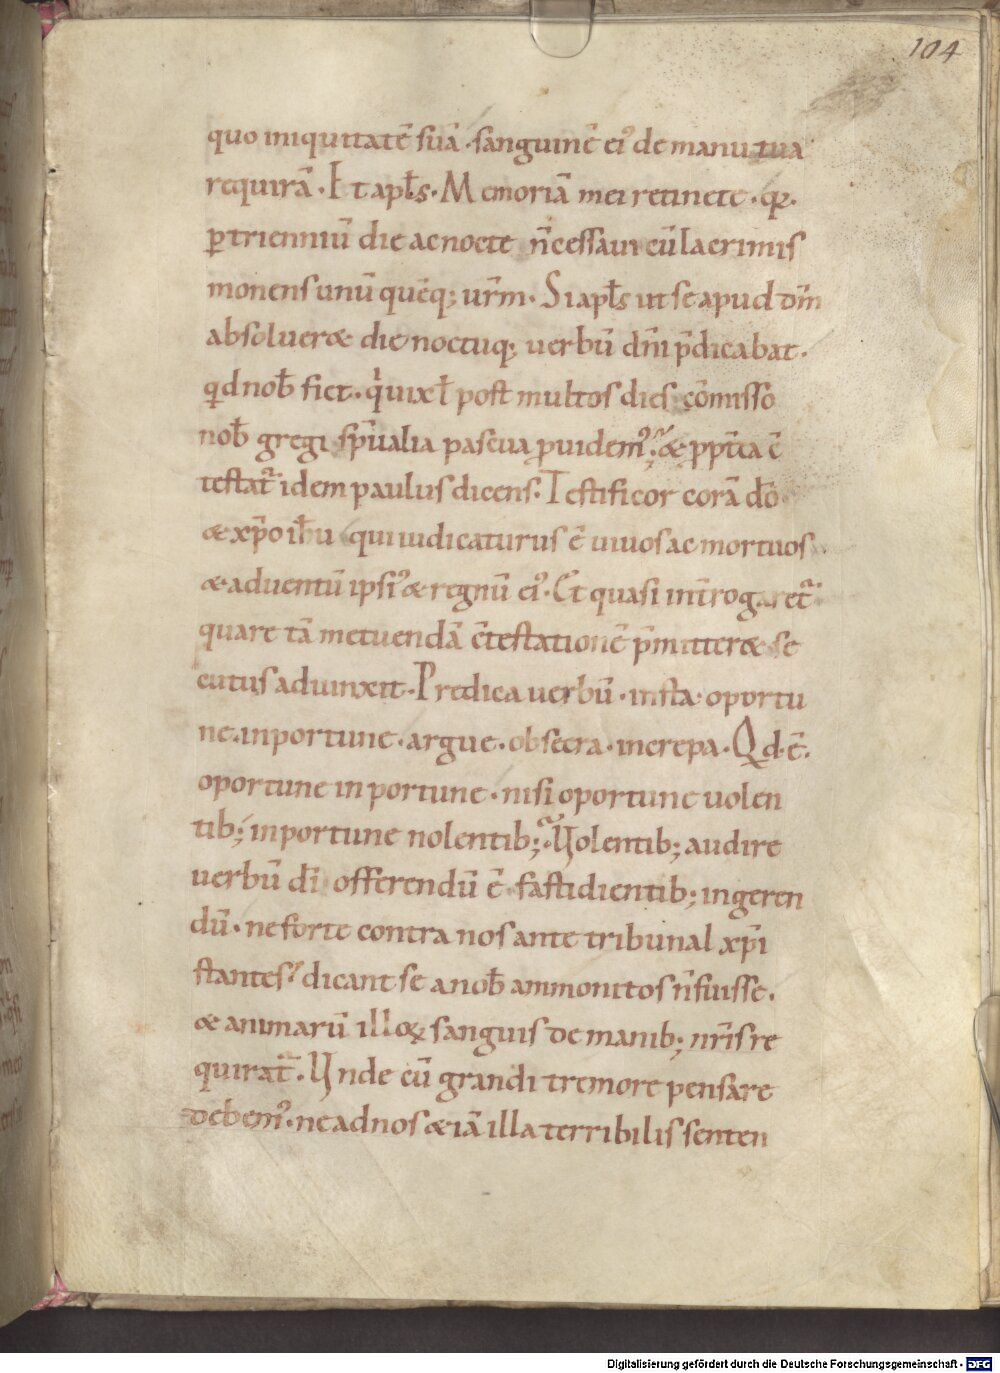 104
quo iniquitatē suā · sanguinē ei᾽ de manu tua
requirā · Et apl̄s · Memoriā mei retinete · qꝛ ·
ꝑ trienniū die ac nocte n̄ cessaui cū lacrimis
monens unū quēq; ur̄m · Si apl̄s ut se apud dm̄
absolueræ die noctuq; uerbū dn̄i p̄dicabat ·
qd nob̄ fiet · post multos dies cōmisso
nob̄ gregi sp̄ualia pascua ꝓuidem᾽; æ ē
testat̄ idem paulus dicens · Testificor corā dō
æ xp̄o ih̄u qui iudicaturus ē uiuos ac mortuos
æ aduentū ipsi᾽ æ regnū ei᾽ · Et quasi int̄rogaret̄
quare tā metuendā testationē p̄mitteræ se
cutus aduinxit · Predica uerbū · insta · oportu
ne · inportune · argue · obsecra · increpa · Qd · ē ·
oportune inportune · nisi oportune uolen
tib; inportune nolentib; · Uolentib; audire
uerbū dī offerendū ē fastidientib; ingeren
dū · ne forte contra nos ante tribunal xp̄i
stantes · dicant se a nob̄ ammonitos n̄ fuisse ·
æ animarū illoꝝ sanguis de manib; nr̄is re
quirat̄ · Unde cū grandi tremore pensare
debem᾽ · ne ad nos æiā illa terribilis senten
Digitalisierung gefördert durch die Deutsche Forschungsgemeinschaft - DFG